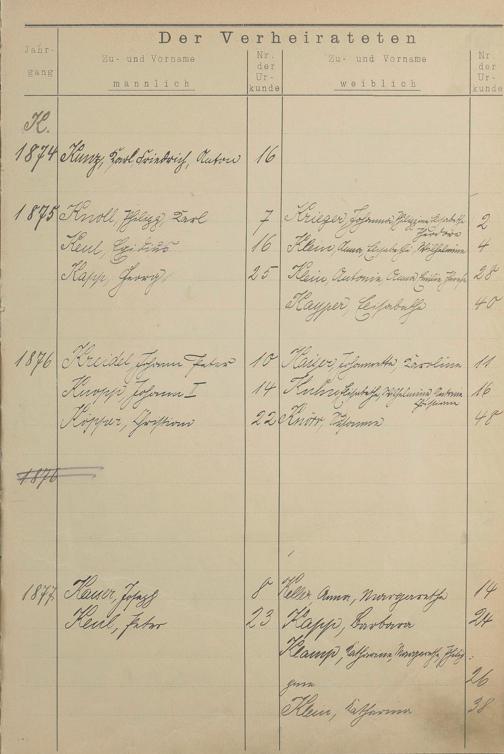 Der Verheirateten
Jahr- Zu- und Vorname Nr. Zu- und Vorname Nr.
gang männlich der weiblich der
Ur- Ur-
kunde kunde
K.
1874 Kunz, Karl Friedrich, Anton 16
1875 Knoll, Philipp, Karl 7 Krieger, Johanna, Philippine, Elisabetha 2
Keul, 16 Klein, Anna, Elisabetha, Wilhelmine 4
Kapp, Georg 25 Klein, Antonie, Anna, 28
Kayper, Elisabetha 40
1876 Kreidel, Johann Peter 10 Kaiser, Johannetta, Karoline 11
Knopp, Johann I 14 Kuhn, Elisabetha, Wilhelmine, 16
Christiane
Christian 22 Knörr, 48
1876
1877 Kaiser, Joseph 8 Keller, Anna, Margarethe 14
Keul, Peter 23 Kapp, Barbara 24
Klamp, Catharina, Margaretha, Philip-
pine 26
Klein, Katharina 38